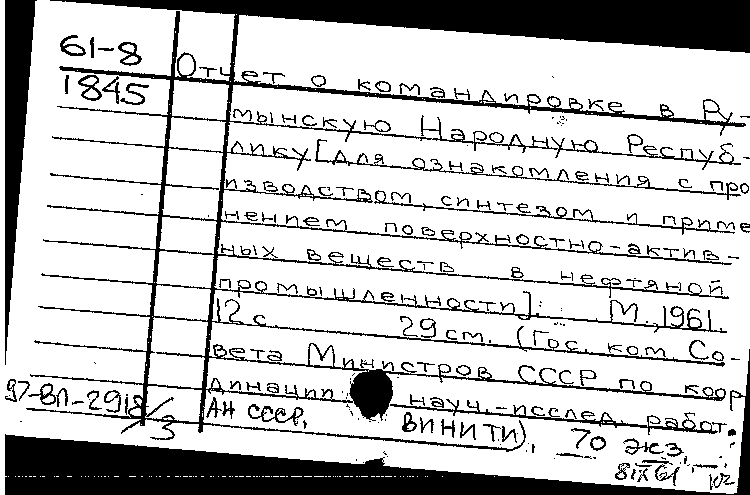 61-8
1845
Отчет о командировке в Ру-
мынскую Народную Респуб-
лику [для ознакомления с про
изводством, синтезом и приме
нением поверхностно-актив-
ных веществ в нефтяной
промышленности]. М., 1961.
12 с. 29 см. (Гос. ком. Со-
вета Министров СССР по коор
динации науч.-исслед. работ.
АН СССР, ВИНИТИ), 70 экз.
97-ВЛ-2918/3
8IX61